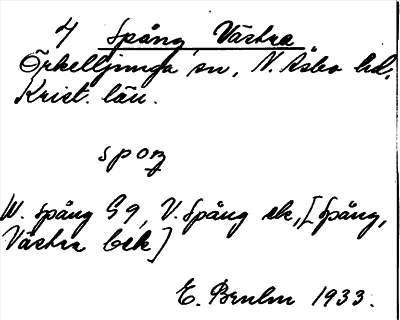 4 Spång, Västra
Örkelljunga sn, N. Åsbo hd,
Krist. län.
spoŋ
W. Spång G9, V. Spång ek, [Spång,
Västra bek]
E. 1933.